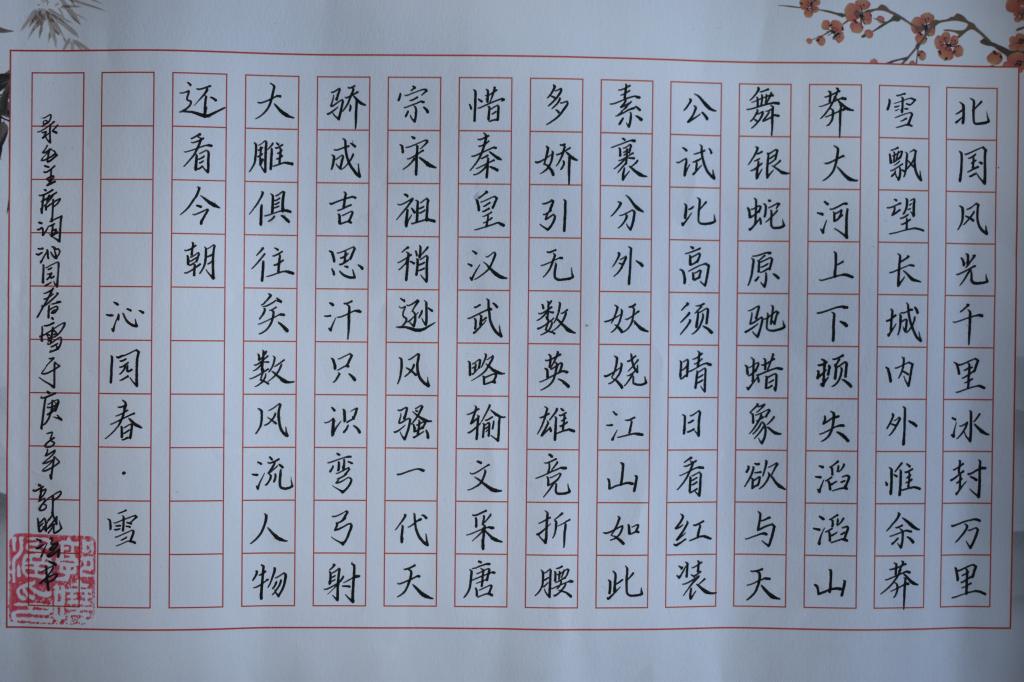 北国风光千里冰封万里
雪飘望长城内外惟余莽
莽大河上下顿失滔滔山
舞银蛇原驰蜡象欲与天
公试比高须晴日看红装
素裹分外妖娆江山如此
多娇引无数英雄竞折腰
惜秦皇汉武略输文采唐
宗宋祖稍逊风骚一代天
骄成吉思汗只识弯弓射
大雕俱往矣数风流人物
还看今朝
沁园春·雪
录毛主席词沁园春雪于庚子年郭晓书